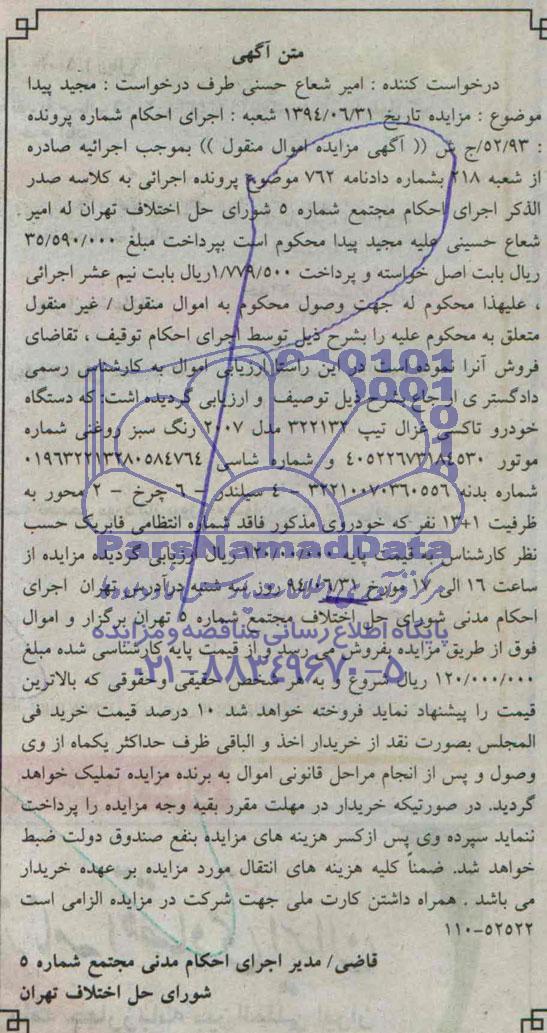 متن آگهی
درخواست کننده : امیر شعاع حسنی طرف درخواست : مجید پیدا
موضوع : مزایده تاریخ ۱۳۹٤/۰٦/۳۱ شعبه : اجرای احکام شماره پرونده
: ۵۲/۹۳/ج ش (( آگهی مزایده اموال منقول )) بموجب اجرائیه صادره
از شعبه ۲۱۸ بشماره دادنامه ۷٦۲ موضوع پرونده اجرائی به کلاسه صدر
الذکر اجرای احکام مجتمع شماره ۵ شورای حل اختلاف تهران له امیر
شعاع حسینی علیه مجید پیدا محکوم است بپرداخت مبلغ ۳۵/۵۹۰/۰۰۰
ریال بابت اصل خواسته و پرداخت ۱/۷۷۹/۵۰۰ریال بابت نیم عشر اجرائی
، علیهذا محکوم له جهت وصول محکوم به اموال منقول / غیر منقول
متعلق به محکوم علیه را بشرح ذیل توسط اجرای احکام توقیف ، تقاضای
فروش آنرا نموده است در این راستا ارزیابی اموال به کارشناس رسمی
دادگستر ی ارجاع بشرح ذیل توصیف و ارزیابی گردیده اشت: که دستگاه
خودرو تاکسی غزال تیپ ۳۲۲۱۳۲ مدل ۲۰۰۷ رنگ سبز روغنی شماره
موتور ٤۰۵۲۲٦۷۳۱۸٤۵۳۰ و شماره شاسی ۰۱۹٦۳۲۲۱۳۲۸۰۵۸٤۷٦٤
شماره بدنه ۳۲۲۱۰۰۷۰۳٦۰۵۵٦ - ٤ سیلندر - ٦ چرخ - ۲ محور به
ظرفیت ۱+۱۳ نفر که خودروی مذکور فاقد شماره انتظامی فابریک حسب
نظر کارشناس به قیمت پایه ۱۲۰/۰۰۰/۰۰۰ ریال ارزیابی گردیده مزایده از
ساعت ۱٦ الی ۱۷ مورخ ۹٤/۰٦/۳۱ روز سه شنبه درآدرس تهران اجرای
احکام مدنی شورای حل اختلاف مجتمع شماره ۵ تهران برگزار و اموال
فوق از طریق مزایده بفروش می رسد و از قیمت پایه کارشناسی شده مبلغ
۱۲۰/۰۰۰/۰۰۰ ریال شروع و به هر شخص حقیقی وحقوقی که بالاترین
قیمت را پیشنهاد نماید فروخته خواهد شد ۱۰ درصد قیمت خرید فی
المجلس بصورت نقد از خریدار اخذ و الباقی ظرف حداکثر یکماه از وی
وصول و پس از انجام مراحل قانونی اموال به برنده مزایده تملیک خواهد
گردید. در صورتیکه خریدار در مهلت مقرر بقیه وجه مزایده را پرداخت
ننماید سپرده وی پس ازکسر هزینه های مزایده بنفع صندوق دولت ضبط
خواهد شد. ضمناً کلیه هزینه های انتقال مورد مزایده بر عهده خریدار
می باشد . همراه داشتن کارت ملی جهت شرکت در مزایده الزامی است
۱۱۰-۵۲۵۲۲
قاضی/ مدیر اجرای احکام مدنی مجتمع شماره ۵
شورای حل اختلاف تهران
ParsNamadData
پایگاه اطلاع رسانی مناقصه و مزایده
۰۲۱-۸۸۳۴۹۶۷۰-۵